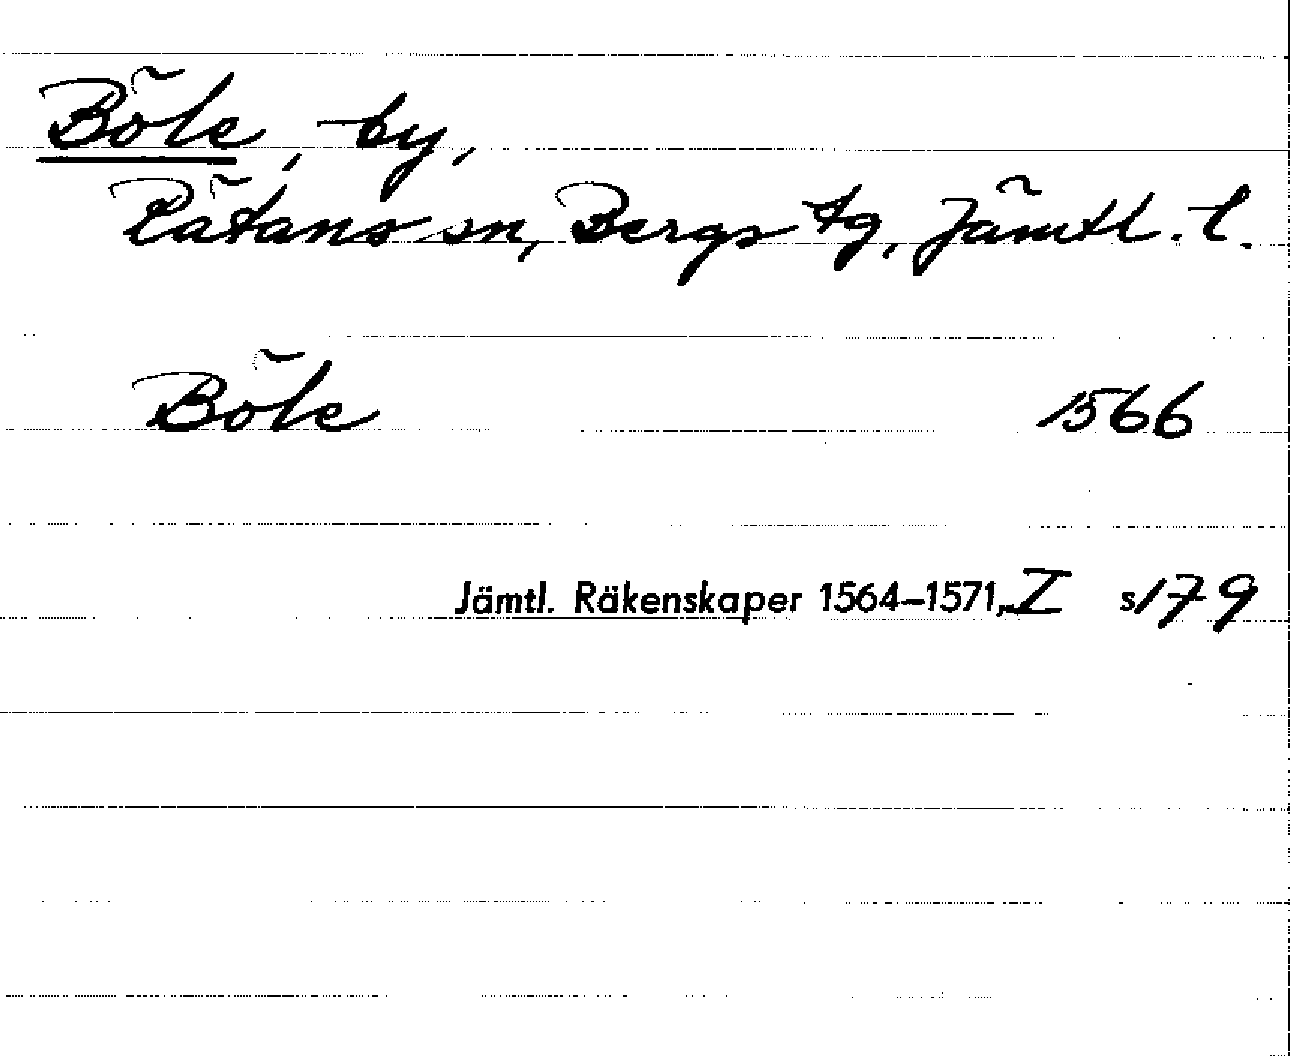 Böle, by,
Rätans sn, Bergs tg, Jämtl. l.
Böle 1566
Jämtl. Räkenskaper 1564–1571, I s 179